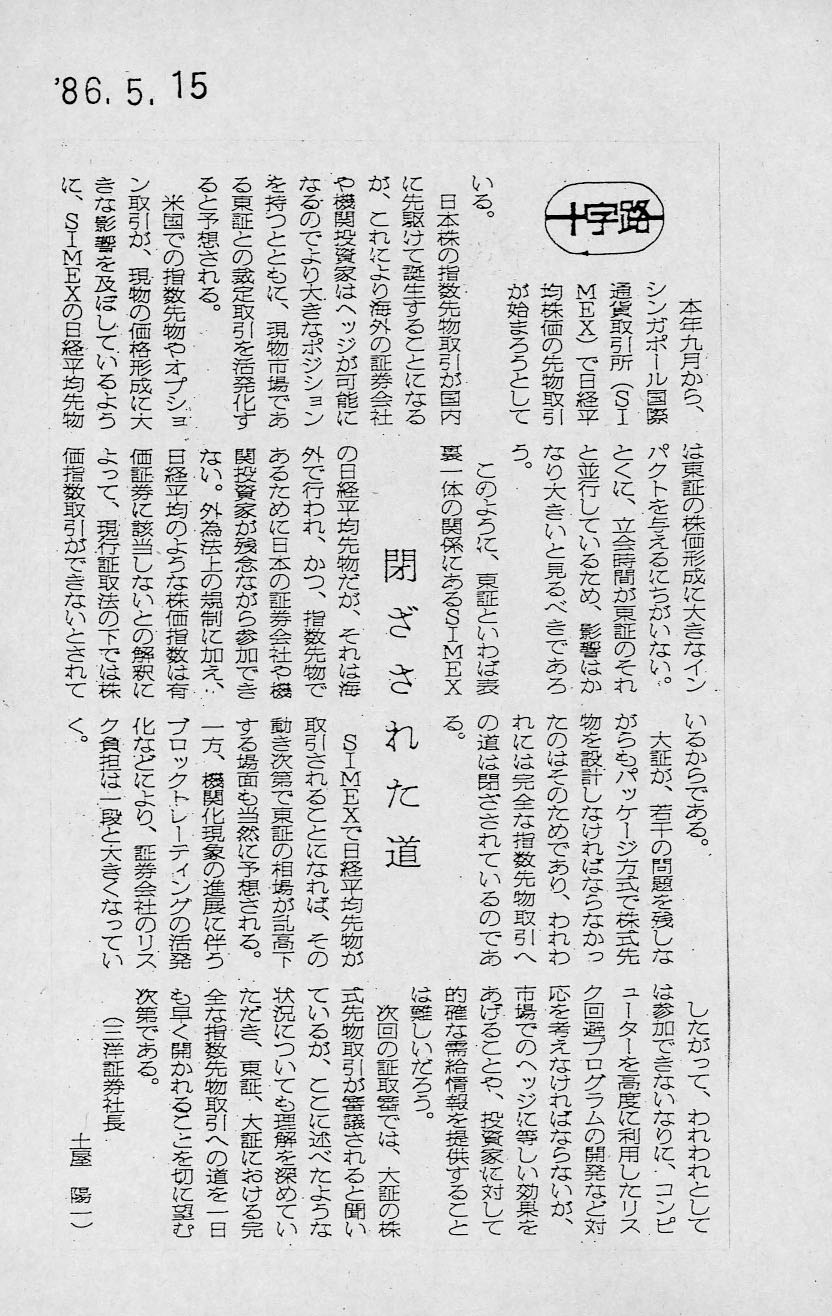 '86.5.15
十字路
閉ざされた道
本年九月から、
シンガポール国際
通貨取引所（SI
MEX）で日経平
均株価の先物取引
が始まろうとして
いる。
日本株の指数先物取引が国内
に先駆けて誕生することになる
が、これにより海外の証券会社
や機関投資家はヘッジが可能に
なるのでより大きなポジション
を持つとともに、現物市場であ
る東証との裁定取引を活発化す
ると予想される。
米国での指数先物やオプショ
ン取引が、現物の価格形成に大
きな影響を及ぼしているよう
に、SIMEXの日経平均先物
は東証の株価形成に大きなイン
パクトを与えるにちがいない。
とくに、立会時間が東証のそれ
と並行しているため、影響はか
なり大きいと見るべきであろ
う。
このように、東証といわば表
裏一体の関係にあるSIMEX
の日経平均先物だが、それは海
外で行われ、かつ、指数先物で
あるために日本の証券会社や機
関投資家が残念ながら参加でき
ない。外為法上の規制に加え、
日経平均のような株価指数は有
価証券に該当しないとの解釈に
よって、現行証取法の下では株
価指数取引ができないとされて
いるからである。
大証が、若干の問題を残しな
がらもパッケージ方式で株式先
物を設計しなければならなかっ
たのはそのためであり、われわ
れには完全な指数先物取引へ
の道は閉ざされているのであ
る。
SIMEXで日経平均先物が
取引されることになれば、その
動き次第で東証の相場が乱高下
する場面も当然に予想される。
一方、機関化現象の進展に伴う
ブロックトレーティングの活発
化などにより、証券会社のリス
ク負担は一段と大きくなってい
く。
したがって、われわれとして
は参加できないなりに、コンピ
ューターを高度に利用したリス
ク回避プログラムの開発など対
応を考えなければならないが、
市場でのヘッジに等しい効果を
あげることや、投資家に対して
的確な需給情報を提供すること
は難しいだろう。
次回の証取審では、大証の株
式先物取引が審議されると聞い
ているが、ここに述べたような
状況についても理解を深めてい
ただき、東証、大証における完
全な指数先物取引への道を一日
も早く開かれることを切に望む
次第である。
（三洋証券社長
土屋　陽一）